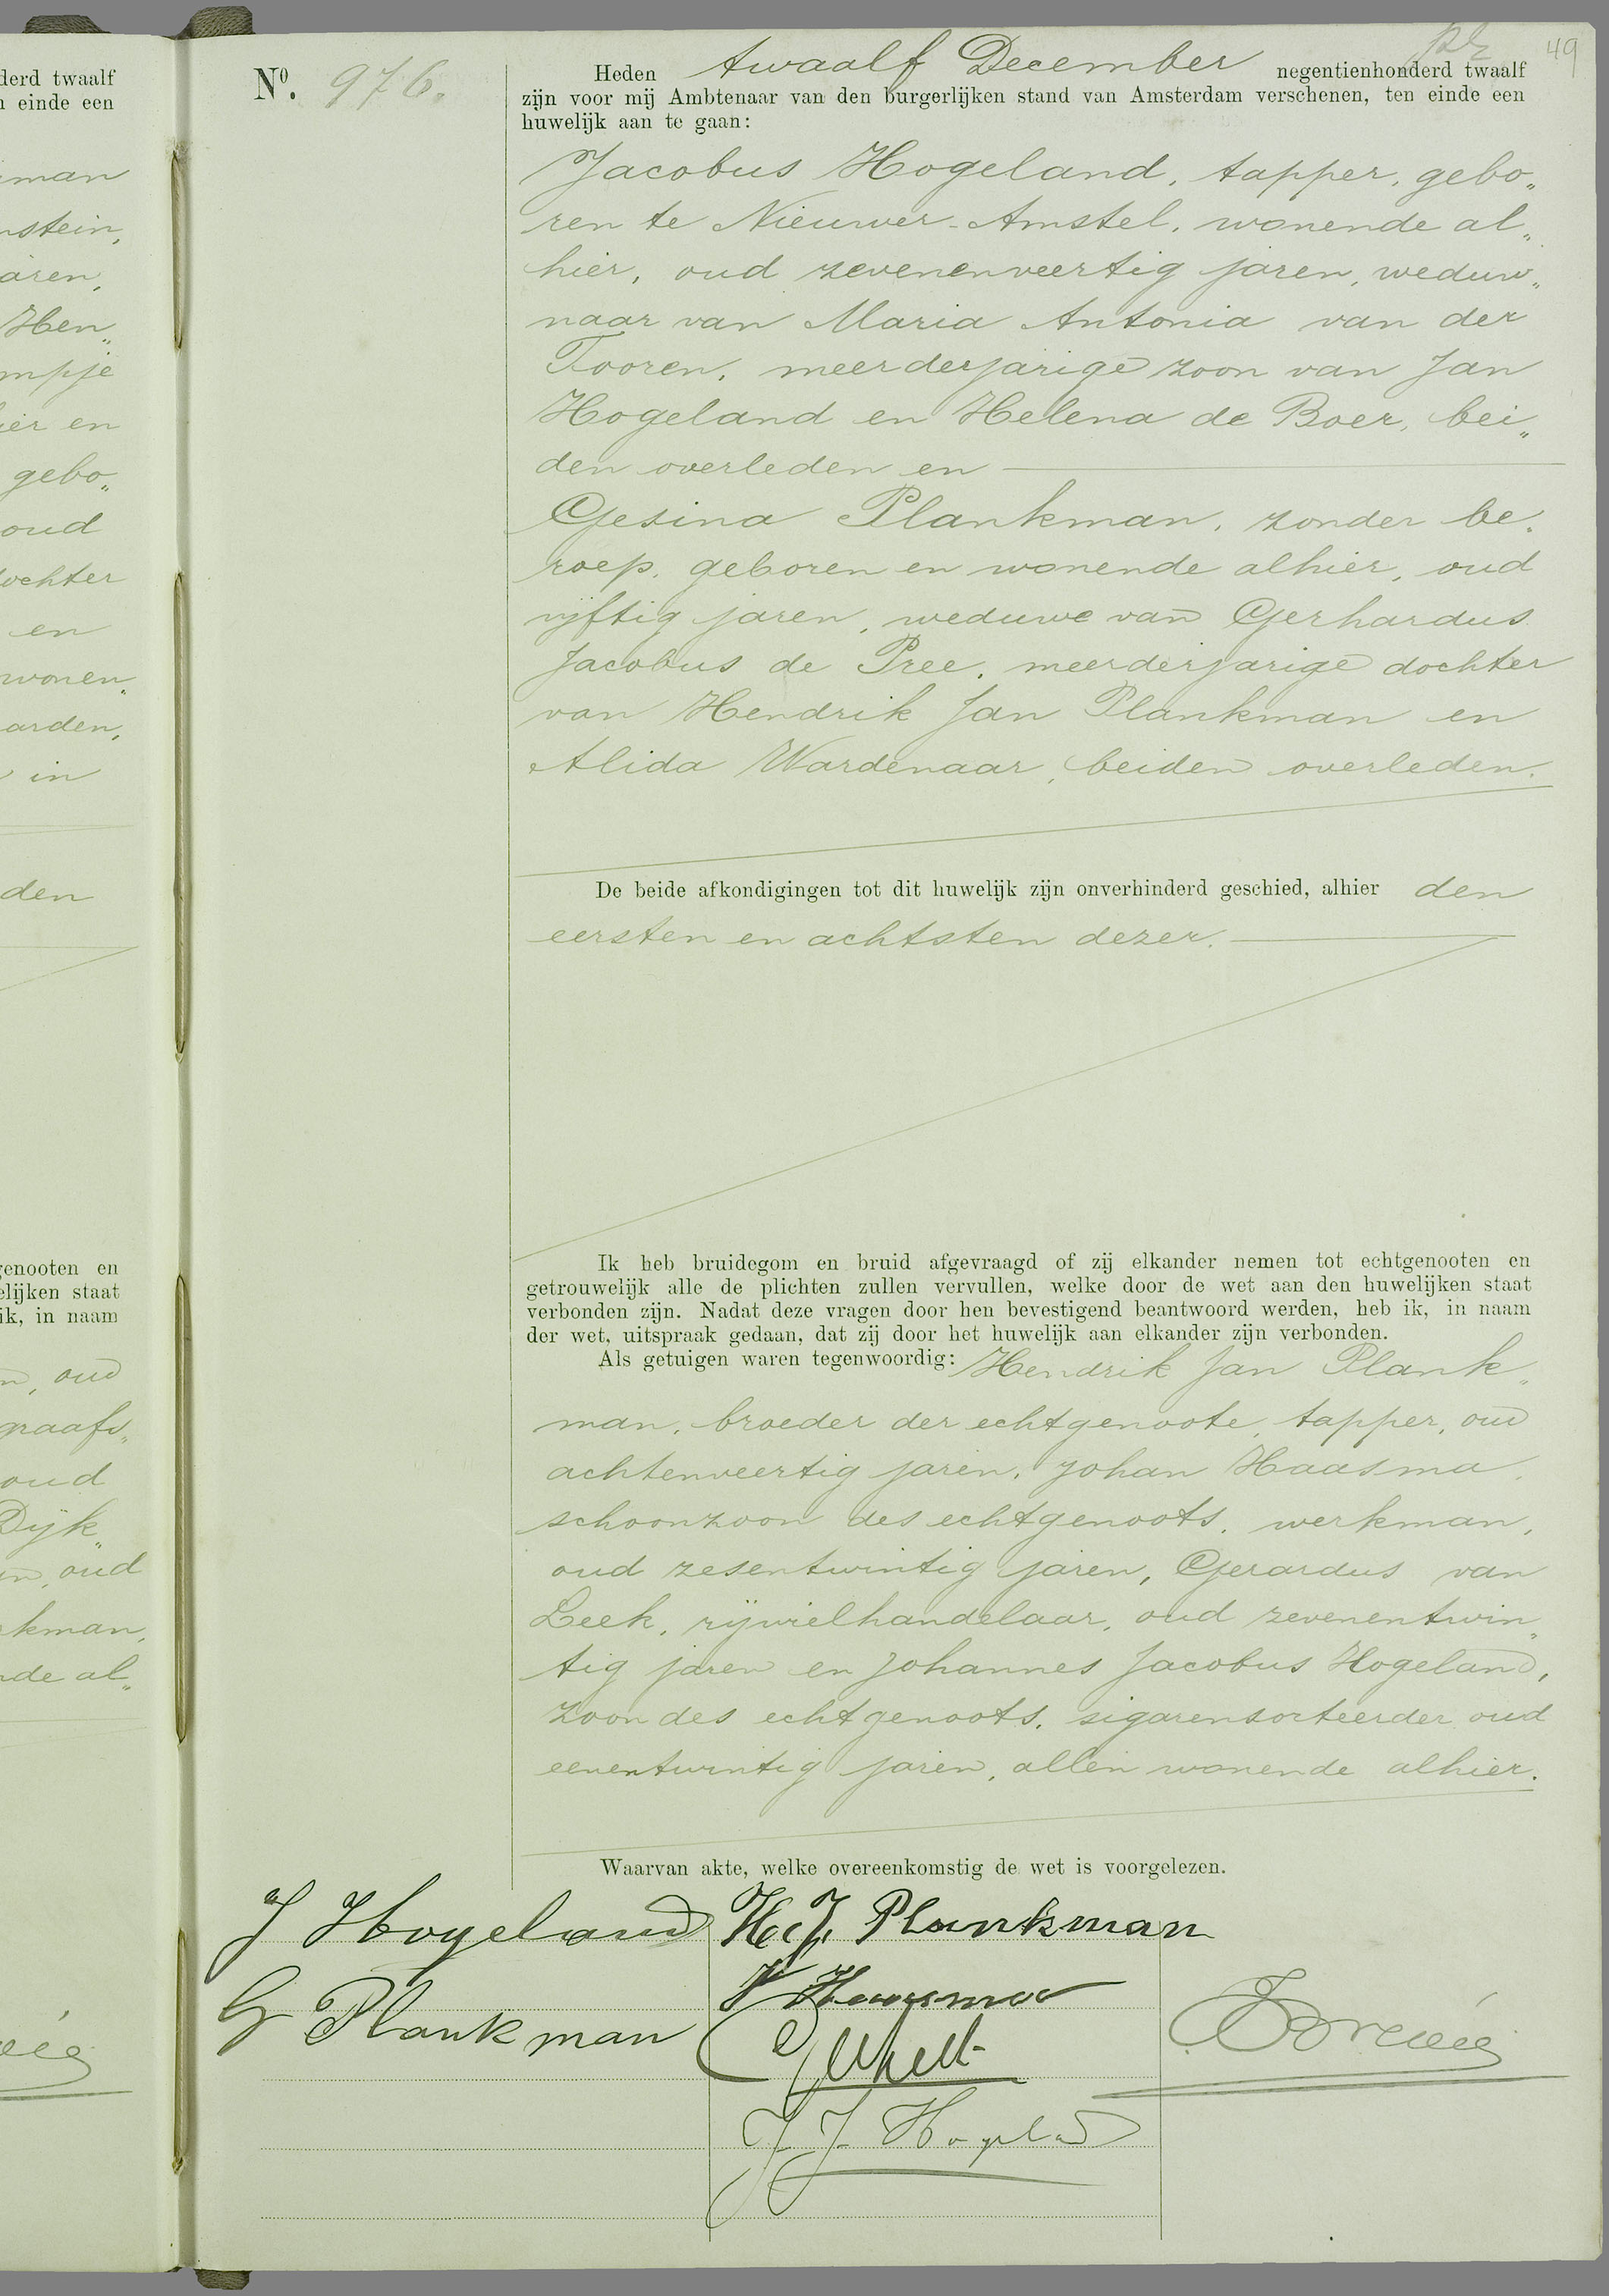 derd twaalf
n einde een
man
nstein,
aren,
Hen„
mpje
ier en
gebo„
oud
dochter
en
wonen„
arden,
in
den
genooten en
elijken staat
ik, in naam
oud
graafs„
oud
Dijk„
oud
kman,
nde al„
49
No. 976.
Heden twaalf December negentienhonderd twaalf
zijn voor mij Ambtenaar van den burgerlijken stand van Amsterdam verschenen, ten einde een
huwelijk aan te gaan:
Jacobus Hogeland, tapper, gebo„
ren te Nieuwer-Amstel, wonende al„
hier, oud zevenenveertig jaren, weduw„
naar van Maria Antonia van der
Tooren, meerderjarige zoon van Jan
Hogeland en Helena de Boer, bei„
den overleden en
Gesina Plankman, zonder be„
roep, geboren en wonende alhier, oud
vijftig jaren, weduwe van Gerhardus
Jacobus de Pree, meerderjarige dochter
van Hendrik Jan Plankman en
Alida Wardenaar, beiden overleden.
De beide afkondigingen tot dit huwelijk zijn onverhinderd geschied, alhier den
eersten en achtsten dezer.
Ik heb bruidegom en bruid afgevraagd of zij elkander nemen tot echtgenooten en
getrouwelijk alle de plichten zullen vervullen, welke door de wet aan den huwelijken staat
verbonden zijn. Nadat deze vragen door hen bevestigend beantwoord werden, heb ik, in naam
der wet, uitspraak gedaan, dat zij door het huwelijk aan elkander zijn verbonden.
Als getuigen waren tegenwoordig: Hendrik Jan Plank„
man, broeder der echtgenoote, tapper, oud
achtenveertig jaren, Johan Haasma,
schoonzoon des echtgenoots, werkman,
oud zesentwintig jaren, Gerardus van
Leek, rijwielhandelaar, oud zevenentwin„
tig jaren en Johannes Jacobus Hogeland,
zoon des echtgenoots, sigarensorteerder oud
eenentwintig jaren, allen wonende alhier.
Waarvan akte, welke overeenkomstig de wet is voorgelezen.
J Hogeland H. J. Plankman
Haasma
G Plankman
J. J. Hogeland